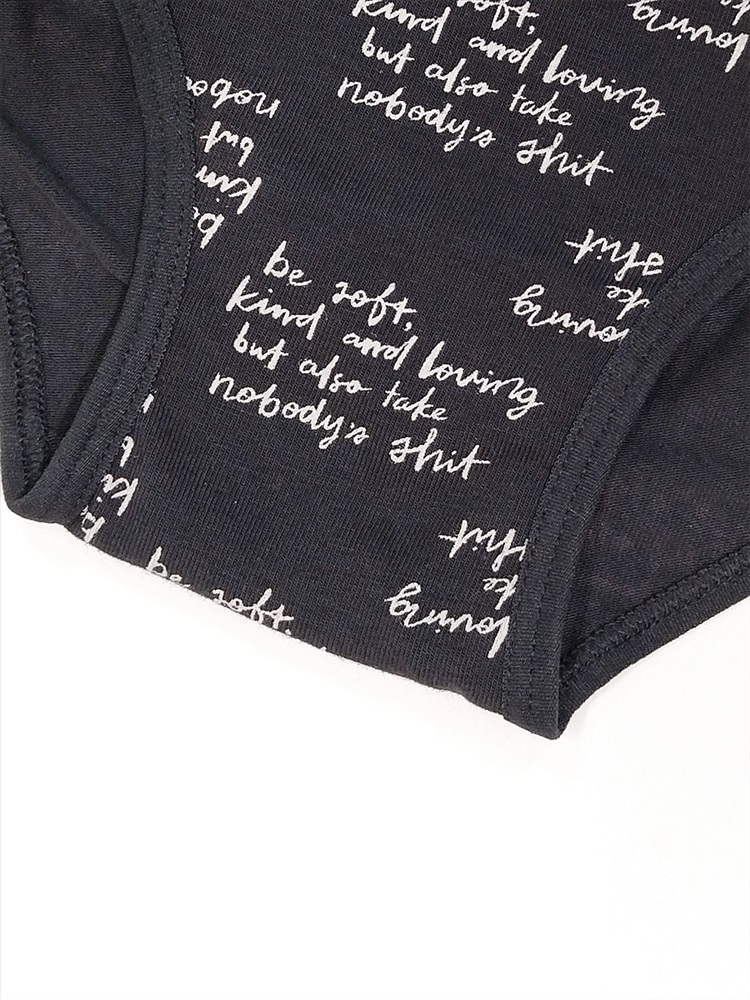 soft,
kind and loving
but also take
nobody's shit
loving
but
shit
be soft,
kind and loving
but also take
nobody's shit
loving
shit
be soft,
loving